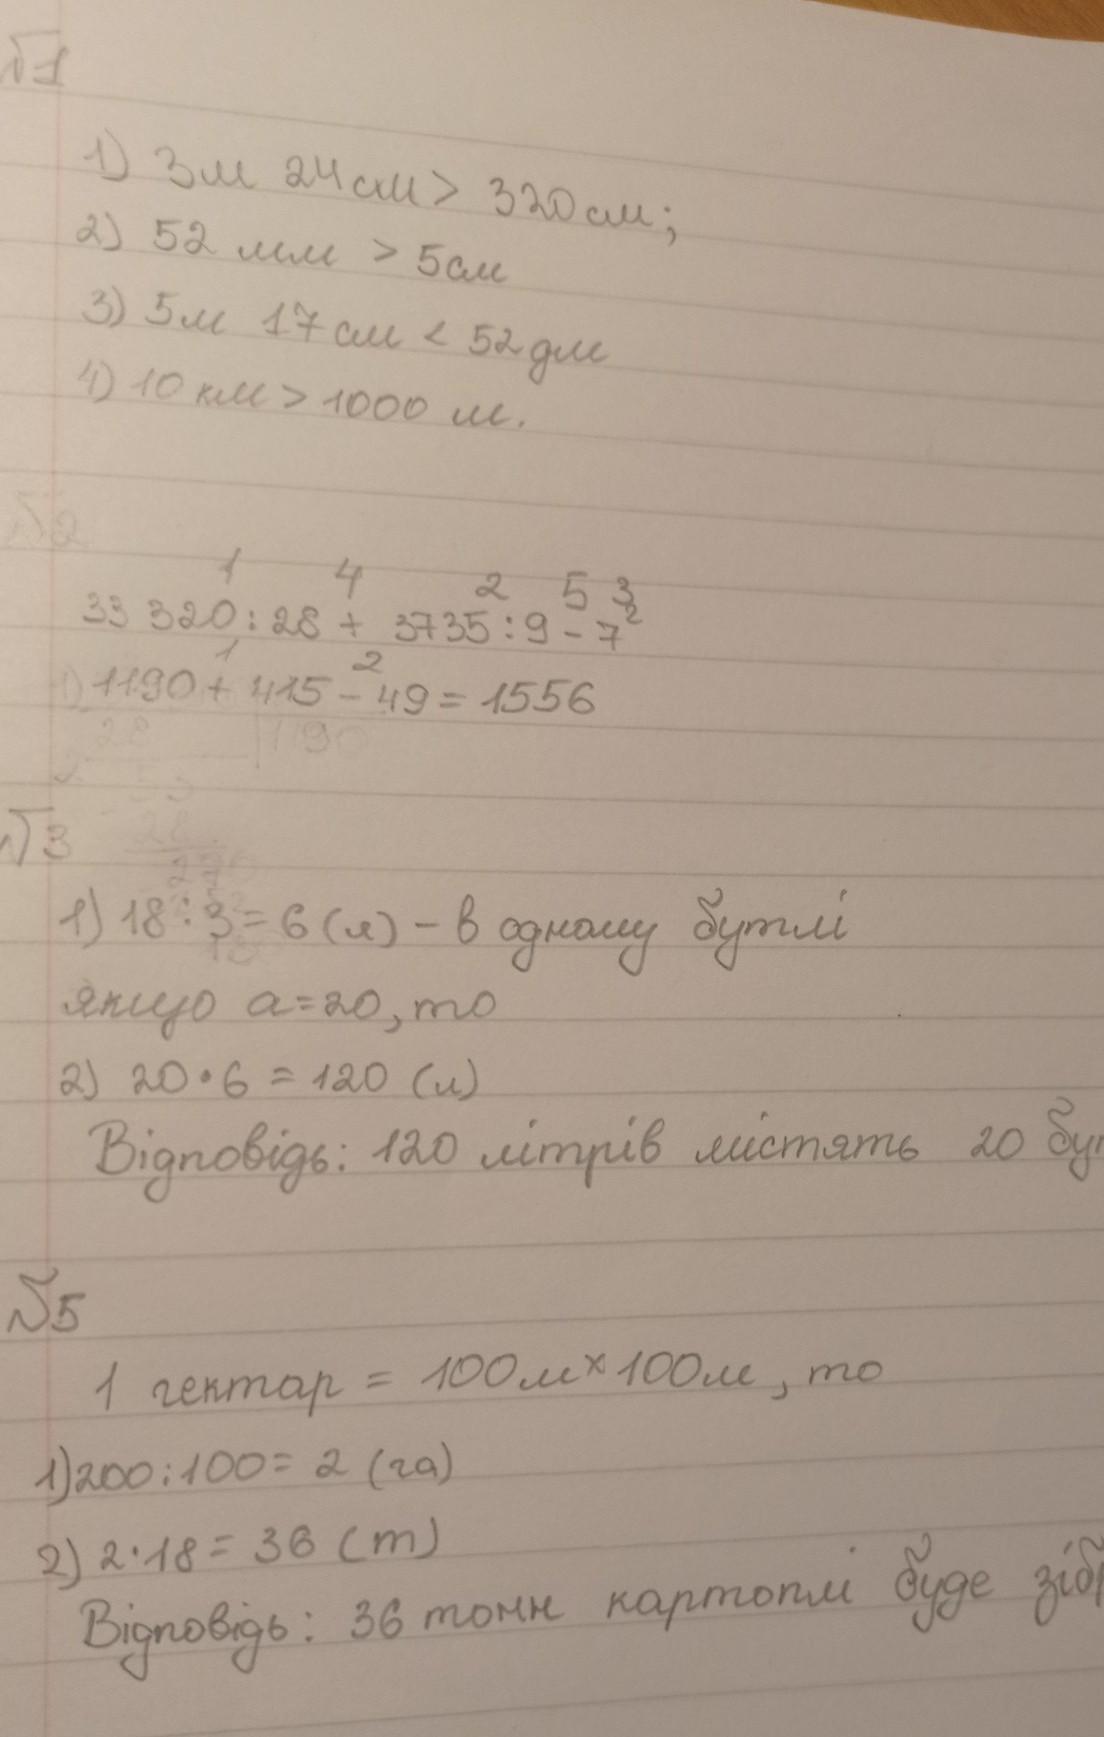 №1
1) 3м 24см > 320см;
2) 52 мм > 5см
3) 5м 17см < 52дм
4) 10 км > 1000 м.
№2
1 4 2 5 3
33 320 : 28 + 3735 : 9 - 7²
1 2
1) 1190 + 415 - 49 = 1556
28 1190
53
28
№3
1) 18 : 3 = 6 (л) - в одному бутлі
якщо а=20, то
2) 20 • 6 = 120 (л)
Відповідь: 120 літрів містять 20
№5
1 гектар = 100м × 100м, то
1) 200 : 100 = 2 (га)
2) 2 • 18 = 36 (т)
Відповідь: 36 тонн картоплі буде